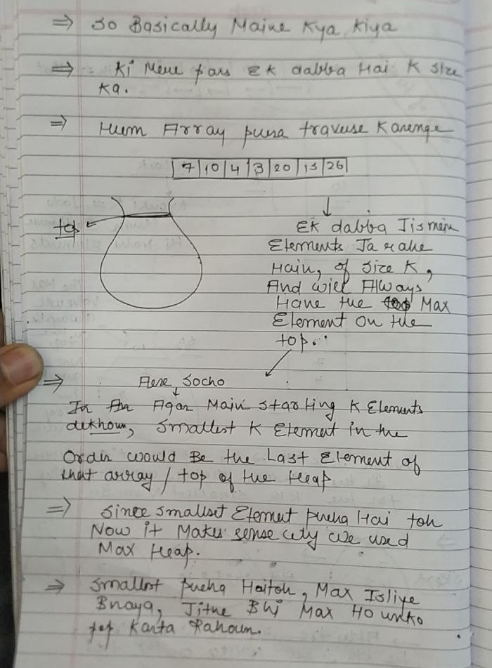 ⇒ So Basically Maine Kya Kiya
⇒ Ki Mere pass Ek dabba Hai K size
Ka.
⇒ Hum Array pura travuse Karenge
7|10|4|3|20|15|26
top
Ek dabba Jismein
Elements Ja rahe
Hain, of size K,
And will Always
Have the Max
Element on the
top..
⇒ Aese Socho
In An Agar Main starting K Elements
dekhoun, smallest K Element in the
Order would Be the Last Element of
that array / top of the Heap
⇒ Since smallest Element pucha Hai toh
Now it Makes sense why we used
Max Heap.
⇒ Smallest pucha Haitoh, Max Isliye
Bnaya, Jitne Bhi Max Ho unko
pop Karta Rahoun.